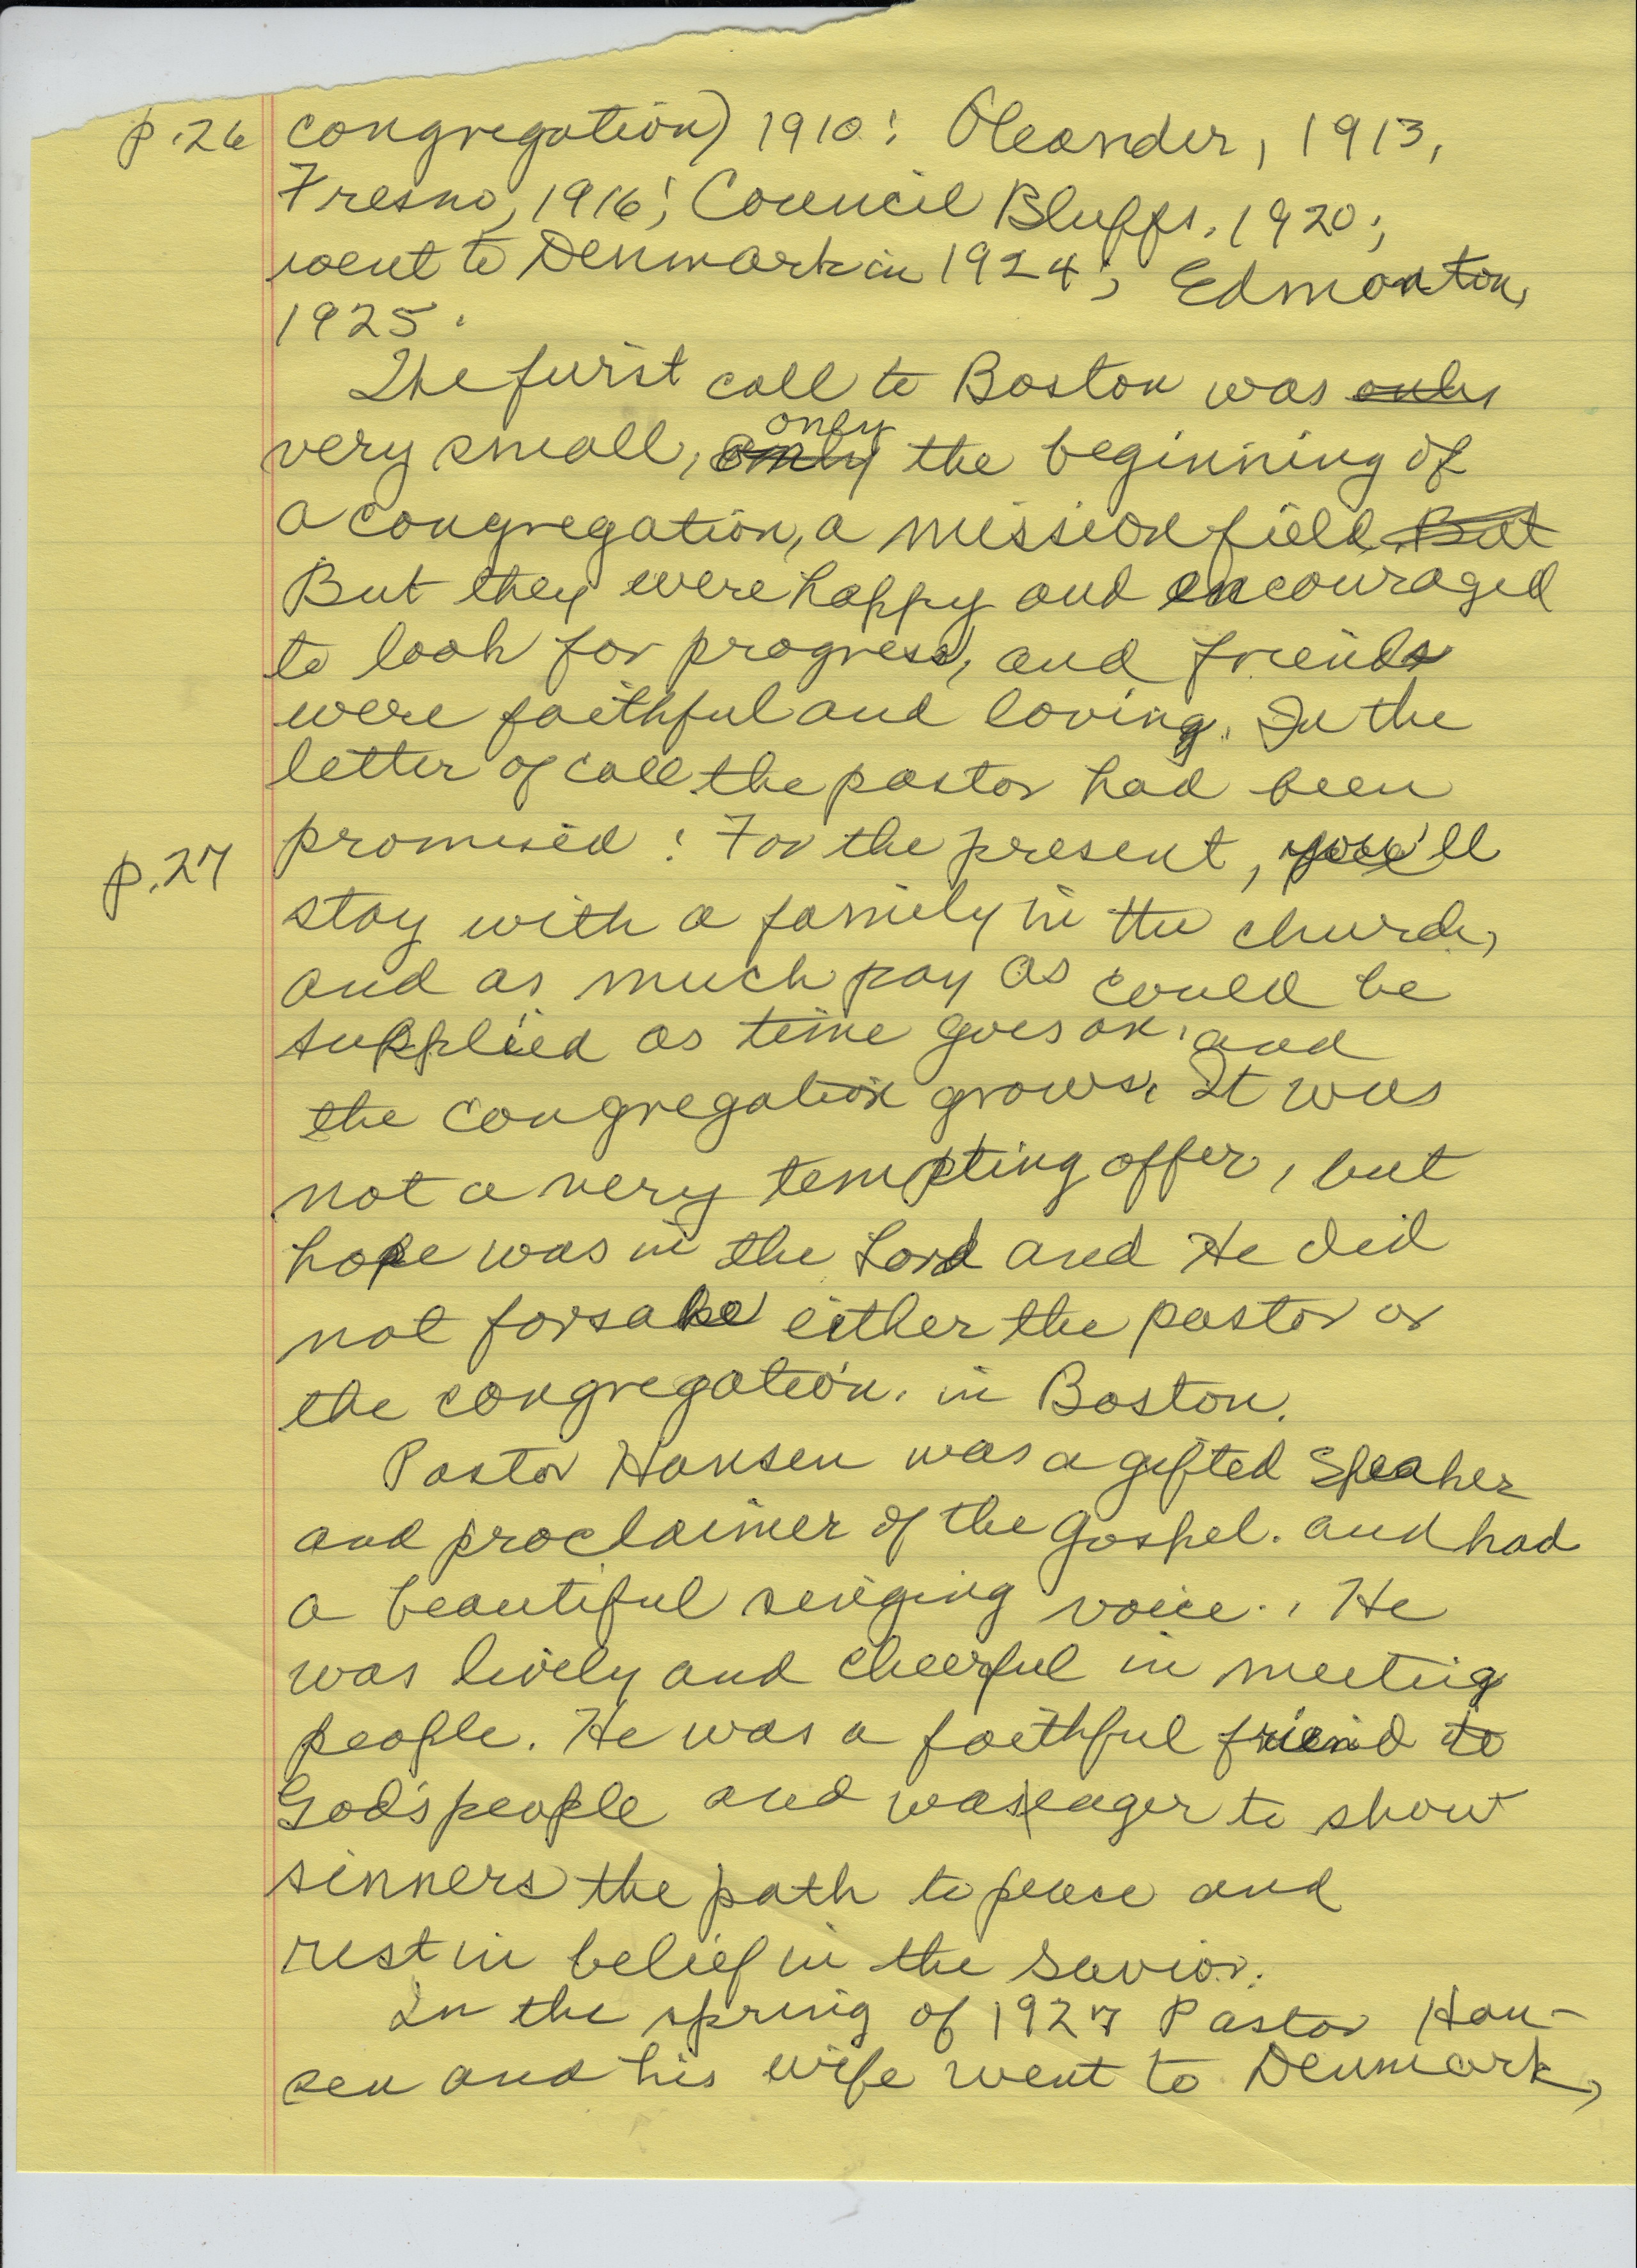 p.26 congregation) 1910; Oleander, 1913,
Fresno, 1916; Council Bluffs, 1920;
went to Denmark in 1924; Edmonton,
1925.
The furist call to Boston was only
very small, only only the beginning of
a congregation, a mission field. But
But they were happy and encouraged
to look for progress, and friends
were faithful and loving. In the
letter of call the pastor had been
promised: For the present, you'll
p.27 stay with a family in the church,
and as much pay as could be
supplied as time goes on, and
the congregation grows. It was
not a very tempting offer, but
hope was in the Lord and He did
not forsake either the pastor or
the congregation. in Boston.
Pastor Hansen was a gifted speaker
and proclaimer of the gospel. and had
a beautiful singing voice. He
was lively and cheerful in meeting
people. He was a faithful friend to
God's people and was eager to show
sinners the path to peace and
rest in belief in the Savior.
In the spring of 1927 Pastor Han-
sen and his wife went to Denmark,